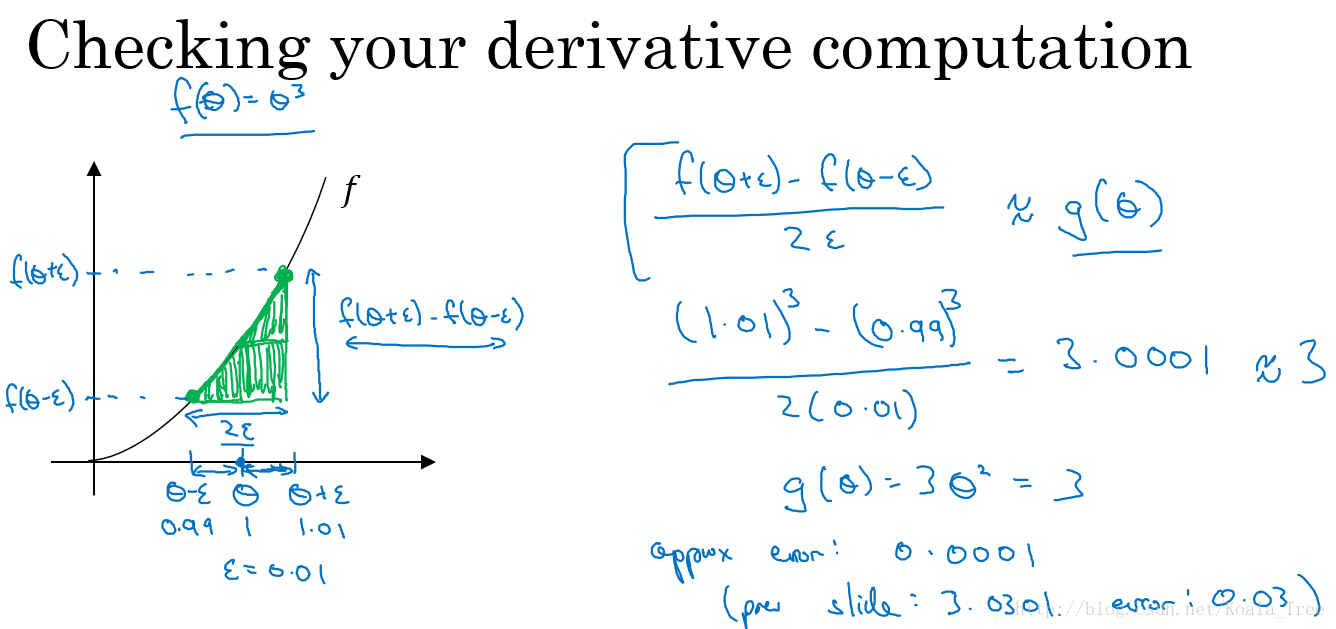 Checking your derivative computation
f(θ) = θ³
f
f(θ+ε)
f(θ-ε)
f(θ+ε) - f(θ-ε)
2ε
θ-ε θ θ+ε
0.99 1 1.01
ε = 0.01
f(θ+ε) - f(θ-ε)
2ε
≈ g(θ)
(1.01)³ - (0.99)³
2(0.01)
= 3.0001 ≈ 3
g(θ) = 3θ² = 3
approx error: 0.0001
(prev slide: 3.0301. error: 0.03)
http://blog.csdn.net/Koala_Tree